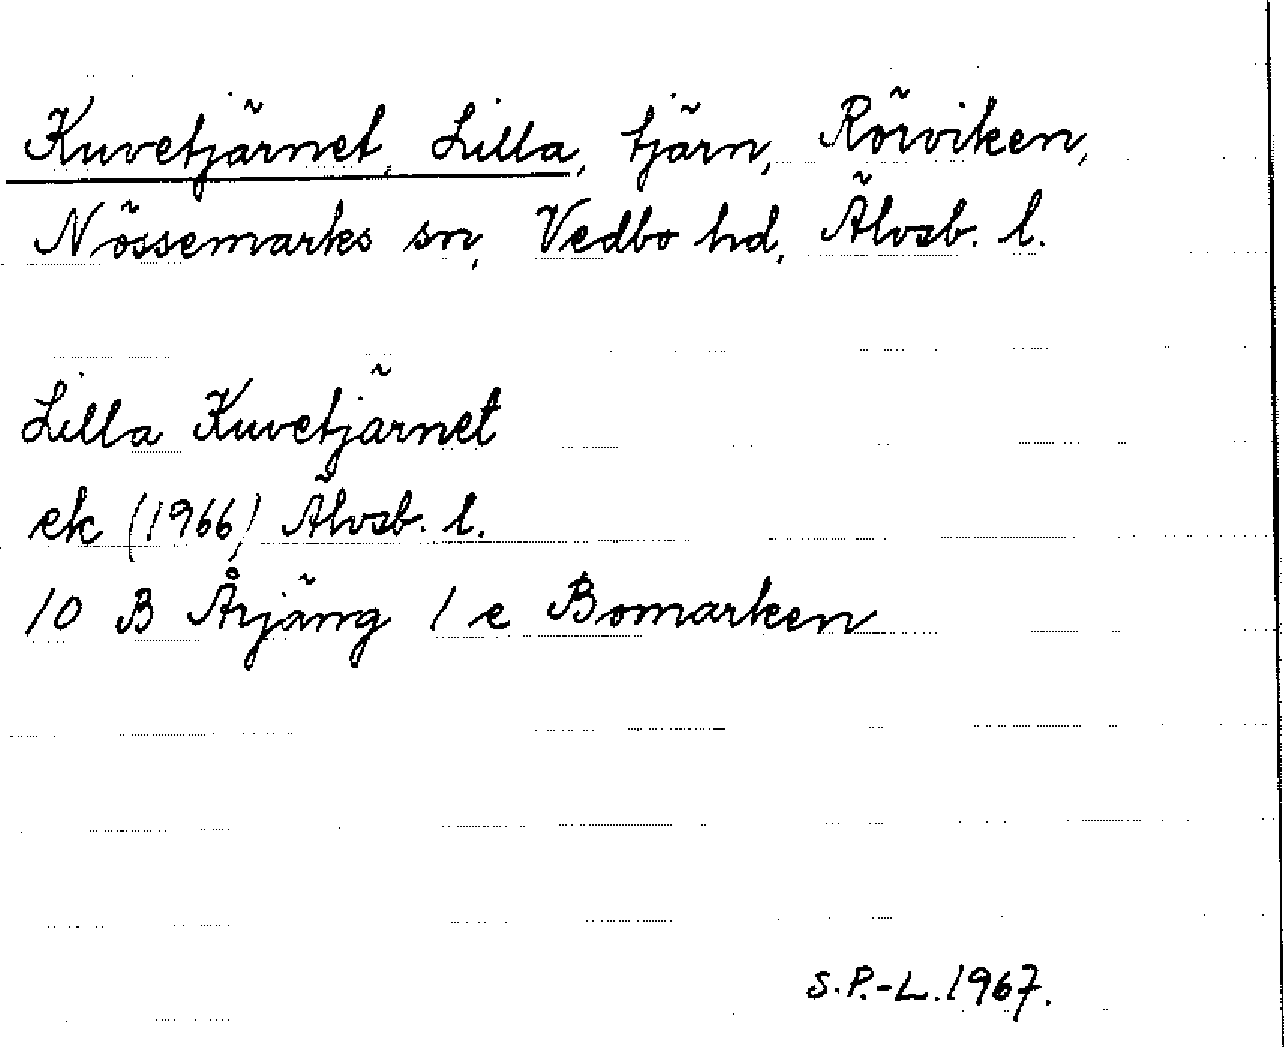 Kuvetjärnet, Lilla, tjärn, Rörviken,
Nössemarks sn, Vedbo hd, Älvsb. l.
Lilla Kuvetjärnet
ek (1966) Älvsb. l.
10 B Årjäng 1 e Bomarken
S.P.-L. 1967.